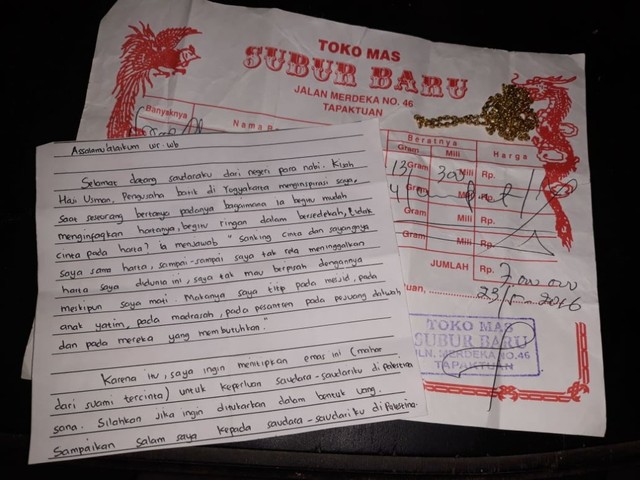 TOKO MAS
SUBUR BARU
JALAN MERDEKA NO. 46
TAPAKTUAN
Banyaknya
Nama
Beratnya
Harga
Gram
Mili
13 Gram 300 Mili Rp.
Gram Rp.
Gram Mili Rp.
Gram Mili Rp.
JUMLAH Rp. 7.000.000
tuan, 23 2016
TOKO MAS
SUBUR BARU
JLN. MERDEKA NO.46
TAPAKTUAN
Assalamu'alaikum wr. wb
Selamat datang saudaraku dari negeri para nabi. Kisah
Haji Usman, Pengusaha batik di Yogyakarta menginspirasi saya,
Saat seseorang bertanya padanya bagaimana ia begitu mudah
menginfaqkan hartanya, begitu ringan dalam bersedekah, tidak
cinta pada harta? ia menjawab " Sanking cinta dan sayangnya
saya sama harta, sampai-sampai saya tak rela meninggalkan
harta saya didunia ini, saya tak mau berpisah dengannya
meskipun saya mati. Makanya saya titip pada mesjid, pada
anak yatim, pada madrasah, pada pesantren pada pejuang dakwah
dan pada mereka yang membutuhkan."
Karena itu, saya ingin menitipkan emas ini (mahar
dari suami tercinta) untuk keperluan saudara-saudariku di Palestina
sana. Silahkan jika ingin ditukarkan dalam bentuk uang.
Sampaikan salam saya kepada saudara-saudariku di Palestina.